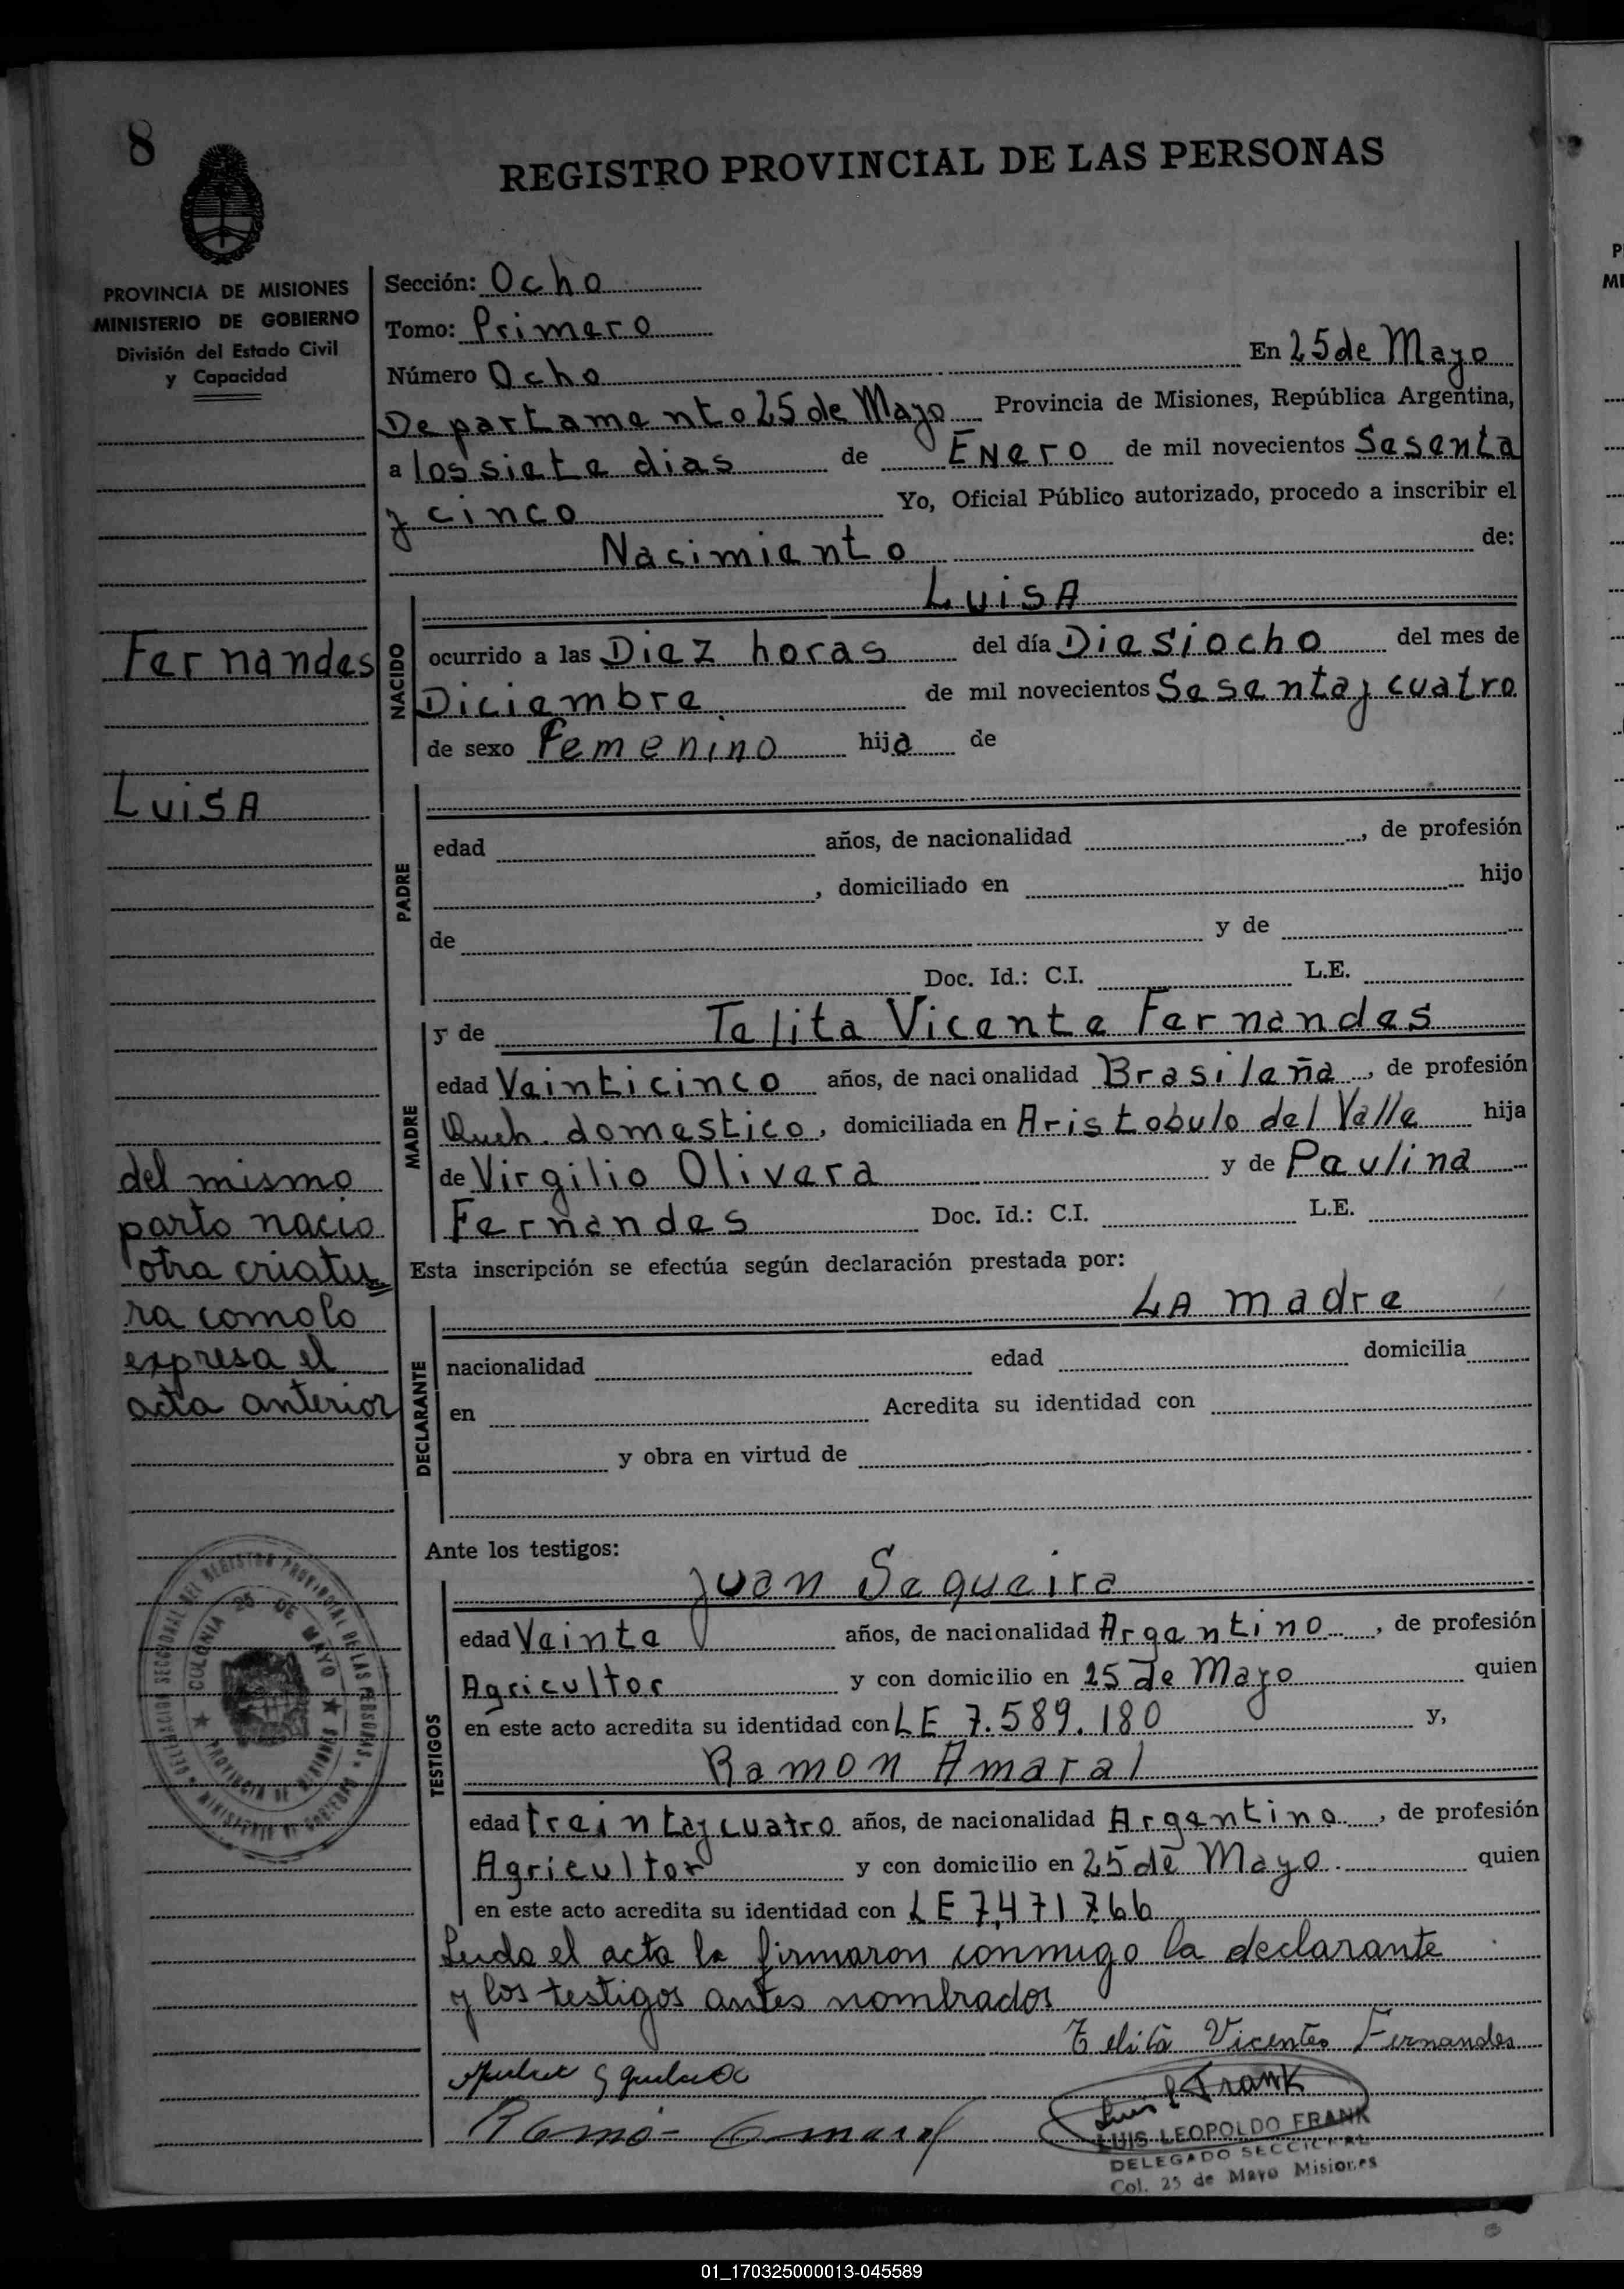 8
REGISTRO PROVINCIAL DE LAS PERSONAS
PROVINCIA DE MISIONES
MINISTERIO DE GOBIERNO
División del Estado Civil
y Capacidad
Fernandes
Luisa
del mismo
parto nacio
otra criatu
ra como lo
expresa el
acta anterior
Sección: Ocho
Tomo: Primero
Número Ocho En 25 de Mayo
Departamento 25 de Mayo Provincia de Misiones, República Argentina,
a los siete dias de Enero de mil novecientos Sesenta
y cinco Yo, Oficial Público autorizado, procedo a inscribir el
Nacimiento de:
NACIDO
Luisa
ocurrido a las Diez horas del día Diesiocho del mes de
Diciembre de mil novecientos Sesenta y cuatro
de sexo Femenino hija de
PADRE
edad años, de nacionalidad , de profesión
, domiciliado en hijo
de y de
Doc. Id.: C.I. L.E.
MADRE
y de Telita Vicente Fernandes
edad Veinticinco años, de nacionalidad Brasileña, de profesión
Queh. domestico, domiciliada en Aristobulo del Valle hija
de Virgilio Olivera y de Paulina
Fernandes Doc. Id.: C.I. L.E.
Esta inscripción se efectúa según declaración prestada por:
DECLARANTE
LA madre
nacionalidad edad domicilia
en Acredita su identidad con
y obra en virtud de
Ante los testigos:
TESTIGOS
Juan Sequeira
edad Veinte años, de nacionalidad Argentino, de profesión
Agricultor y con domicilio en 25 de Mayo quien
en este acto acredita su identidad con LE 7.589.180 y,
Ramon Amaral
edad treinta y cuatro años, de nacionalidad Argentino, de profesión
Agricultor y con domicilio en 25 de Mayo. quien
en este acto acredita su identidad con LE 7,471766
Leida el acta la firmaron conmigo la declarante
y los testigos antes nombrados
Telita Vicentes Fernandes
Luis L Frank
LUIS LEOPOLDO FRANK
DELEGADO SECCIONAL
Col. 25 de Mayo Misiones
COLONIA 25 DE MAYO
PROVINCIA DE MISIONES
DELEGACION SECCIONAL DEL REGISTRO PROVINCIAL DE LAS PERSONAS
MINISTERIO DE GOBIERNO
01_170325000013-045589